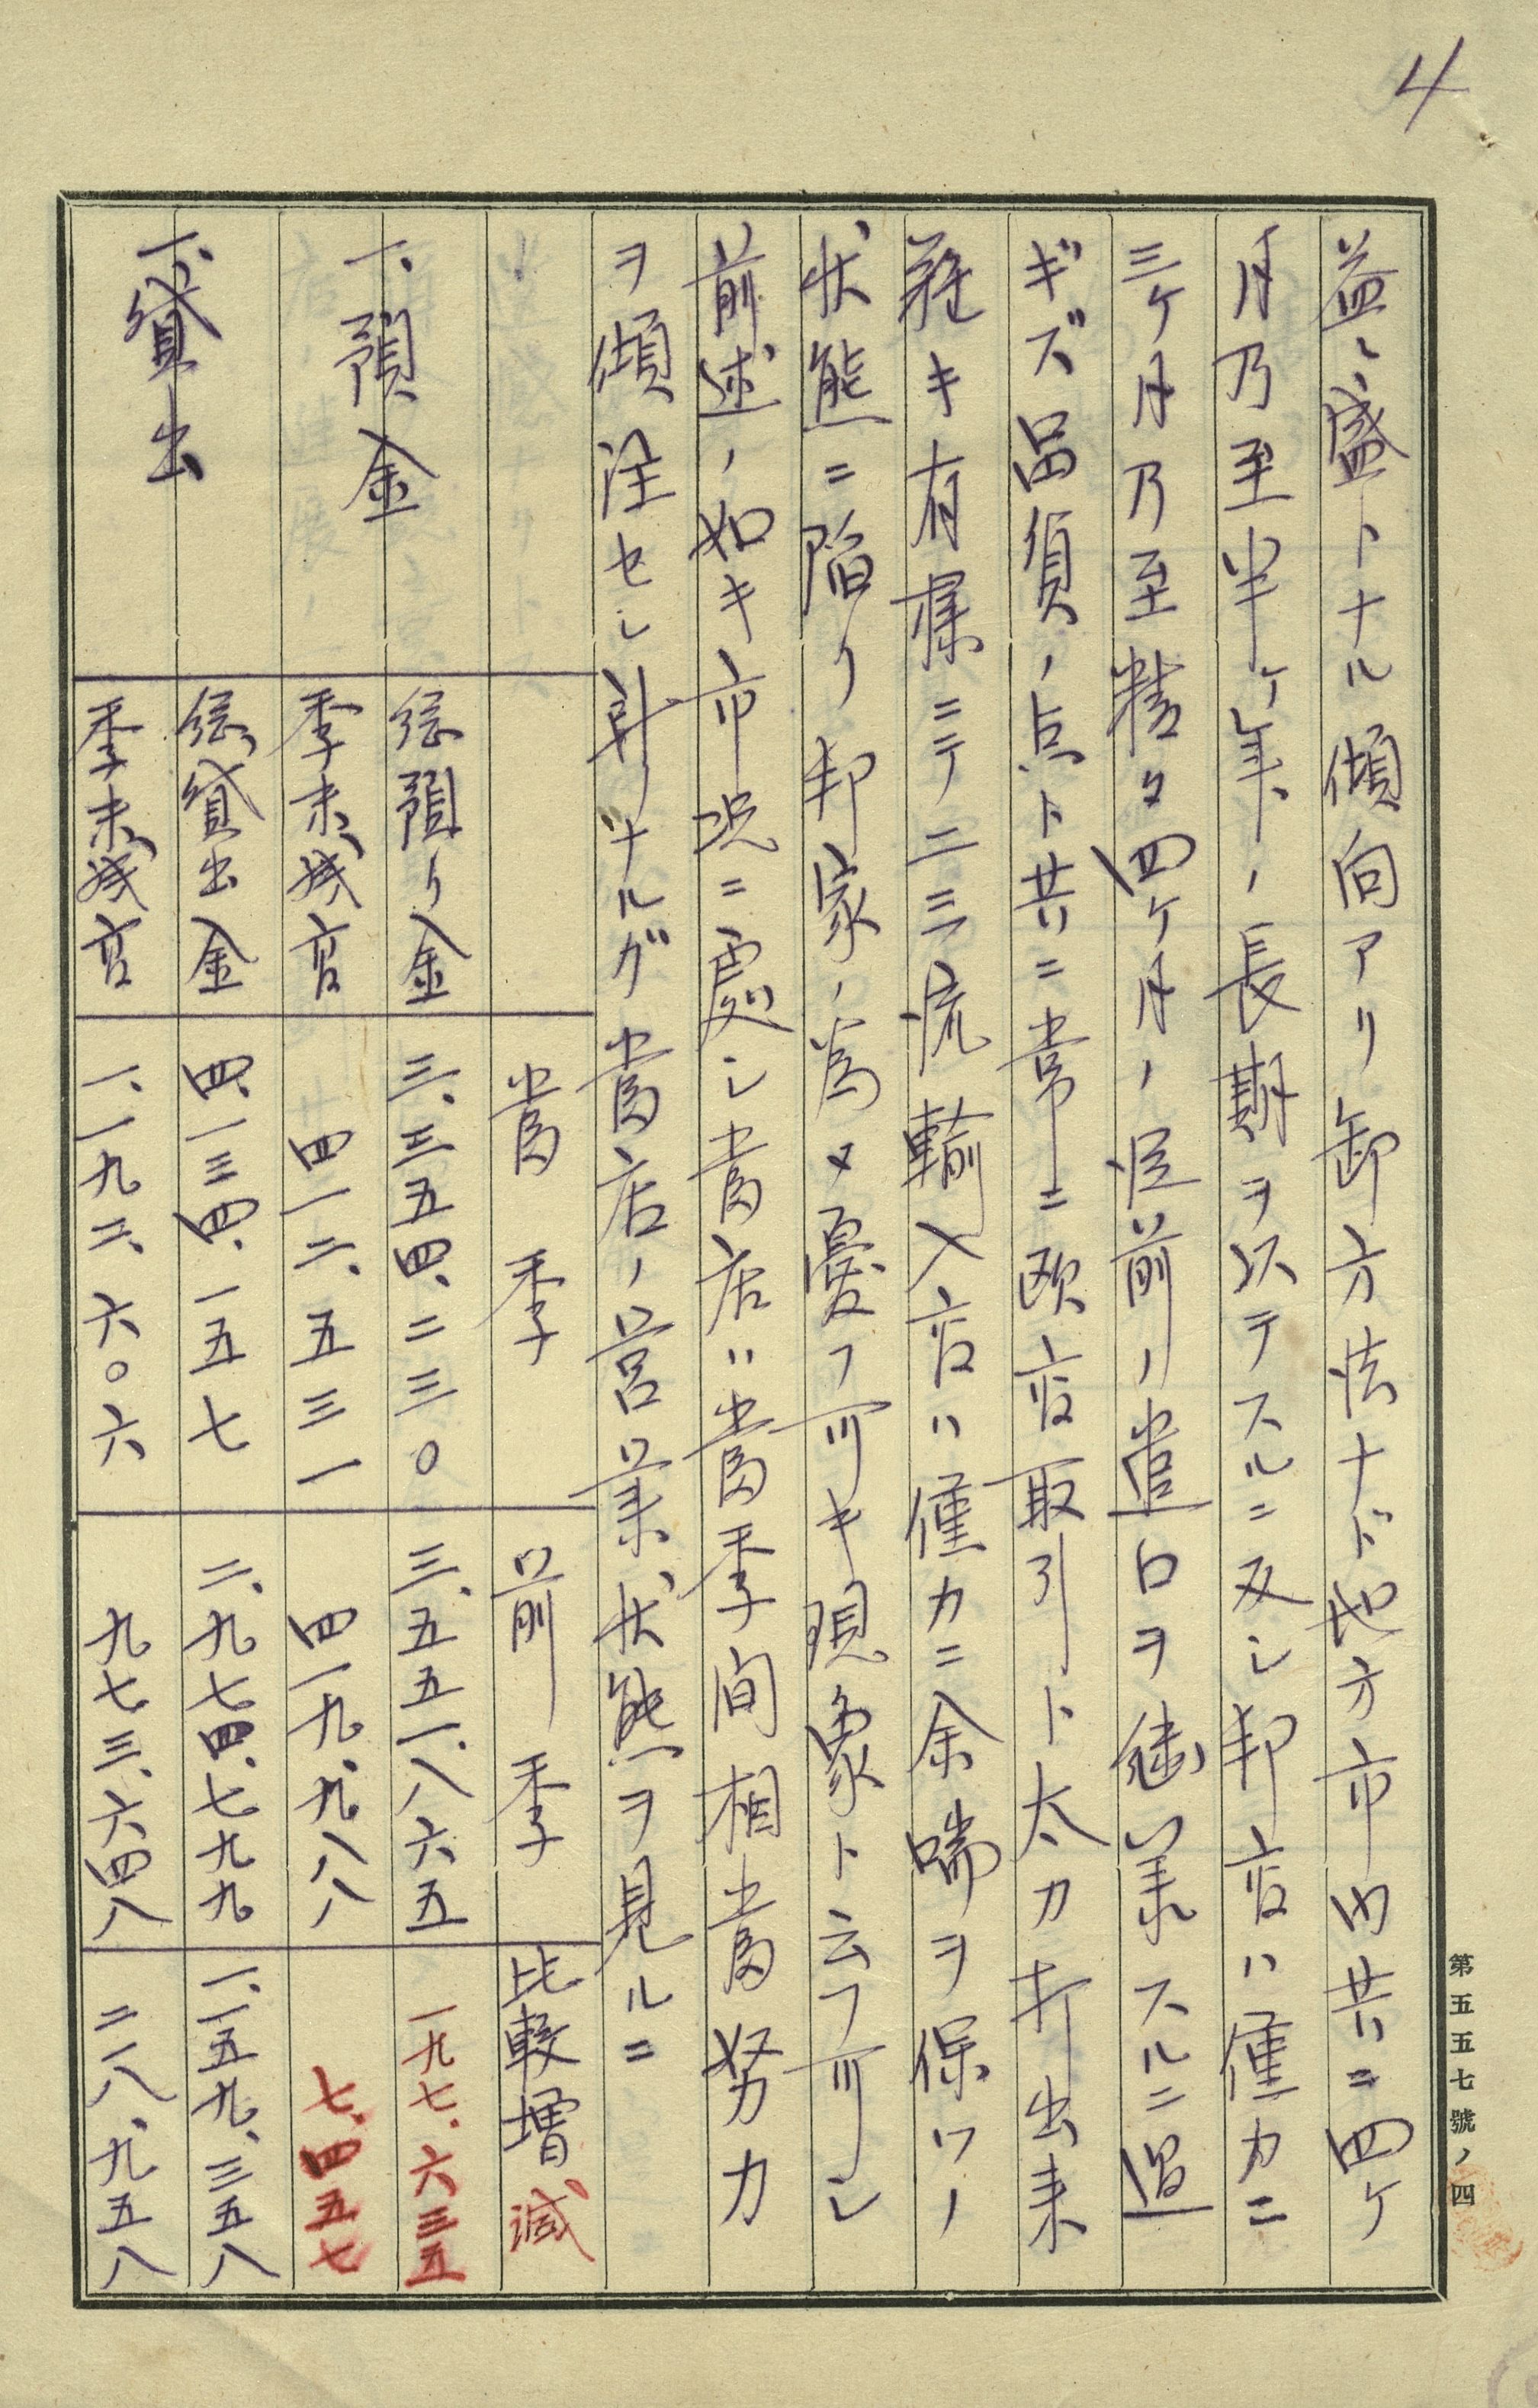 4
益々盛トナル傾向アリ卸方法ナド地方市内共ニ四ケ
月乃至半ケ年ノ長期ヲ以テスルニ反シ邦商ハ僅カニ
三ケ月乃至精々四ケ月ノ従前ノ遣口ヲ継業スルニ過
ギズ品質ノ点ト共ニ常ニ欧商取引ト太刀打出来
難キ有様ニテ二三流輸入商ハ僅カニ余喘ヲ保ツノ
状態ニ陥リ邦家ノ為メ憂フ可キ現象ト云フ可シ
前述ノ如キ市況ニ處シ當店ハ當季間相當努力
ヲ傾注セシ訳ナルガ當店ノ営業状態ヲ見ルニ
當季 前季 比較増減
一、預金 総預リ金 三、三五四、二三〇 三、五五一、八六五 一九七、六三五
季末残高 四一二、五三一 四一九、九八八 七、四五七
一、貸出 総貸出金 四、一三四、一五七 二、九七四、七九九 一、一五九、三五八
季末残高 一、一九二、六〇六 九七三、六四八 二一八、九五八
第五五七號ノ四